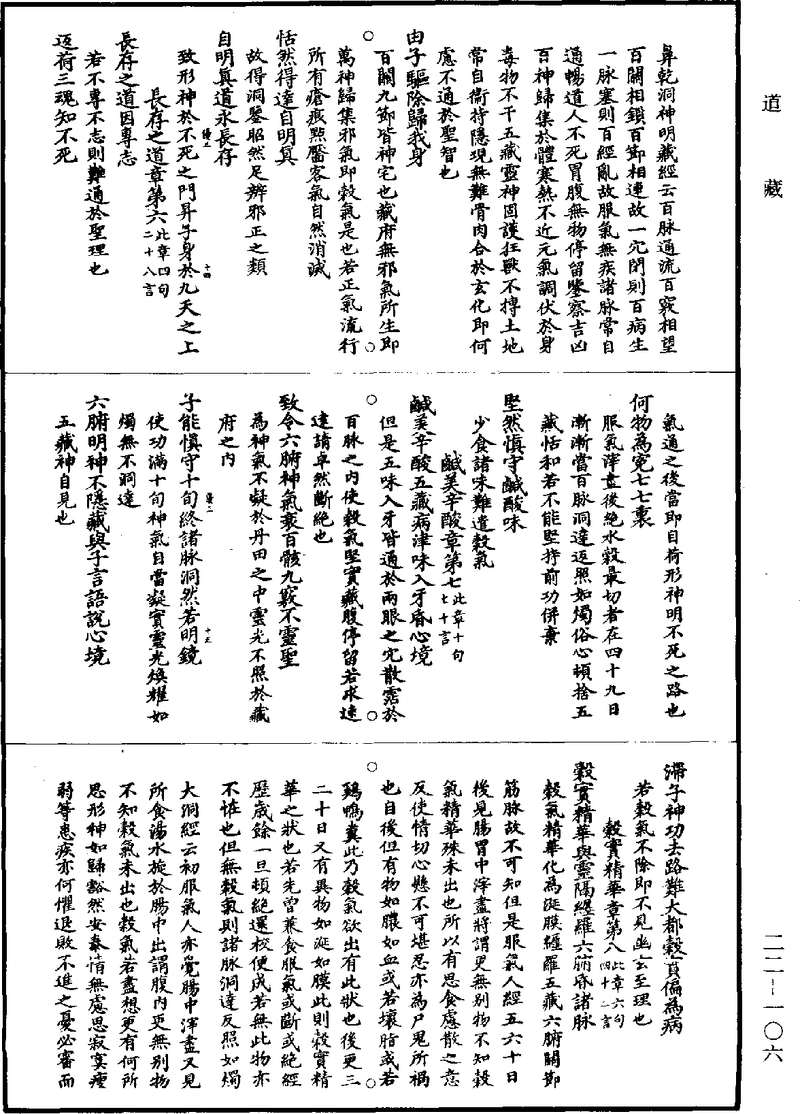 道藏
鼻乾洞神明藏經云百脉通流百竅相望
百關相鎖百節相連故一穴閉則百病生
一脉塞則百經亂故服氣無疾諸脉常自
通暢道人不死胃腹無物停留鑒察吉凶
百神歸集於體寒熱不近元氣調伏於身
毒物不干五藏靈神固護狂獸不搏土地
常自衛持隱現無難骨肉合於玄化即何
慮不通於聖智也
由子驅除歸我身
百關九節皆神宅也藏府無邪氣所生即
萬神歸集邪氣即穀氣是也若正氣流行
所有瘡痕㸃靨客氣自然消滅
恬然得達自明真
故得洞鑒昭然足辨邪正之類
自明真道永長存
致形神於不死之門昇子身於九天之上
長存之道章第六此章四句二十八言
長存之道因專志
若不專不志則難通於聖理也
返荷三魂知不死
氣通之後當即自荷形神明不死之路也
何物為冤七七裏
服氣滓盡後絶水穀最切者在四十九日
漸漸當百脉洞達返照如燭俗心頓捨五
藏恬和若不能堅持前功併棄
堅然慎守鹹酸味
少食諸味難遣穀氣
鹹美辛酸章第七此章十句七十言
鹹美辛酸五藏病津味入牙昏心境
但是五味入牙皆通於兩眼之穴散霑於
百脉之内使穀氣堅實藏腹停留若求速
達請卓然斷絶也
致令六腑神氣衰百骸九竅不靈聖
為神氣不凝於丹田之中靈光不照於藏
府之内
子能慎守十旬終諸脉洞然若明鏡
使功滿十旬神氣自當凝實靈光煥耀如
燭無不洞達
六腑明神不隱藏與子言語說心境
五藏神自見也
滯子神功去路難大都穀實偏為病
若穀氣不除即不見幽玄至理也
穀實精華章第八此章六句四十二言
穀實精華與靈隔纒羅六筋昏諸脉
穀氣精華化為涎膜纒羅五藏六腑關節
筋脉故不可知但是服氣人經五六十日
後見腸胃中滓盡將謂更無别物不知穀
氣精華殊未出也所以有思食慮散之意
反使情切心懸不可堪忍亦為尸鬼所禍
也自後但有物如膿如血或若壞脂或若
鷄鴨糞此乃穀氣欲出有此狀也後更三
二十日又有異物如涎如膜此則穀實精
華之狀也若先曾兼食服氣或斷或絶經
歷歲餘一旦頓絶還校便成若無此物亦
不恠也但無穀氣則諸脉洞達反照如燭
大洞經云初服氣人亦覺腸中滓盡又見
所食湯水旋於腸中出謂腹内更無别物
不知穀氣未出也穀氣若盡想更有何所
思形神如歸豁然安泰情無慮思寂寞瘦
弱等患疾亦何懼退敗不進之憂必審而
二二–一〇六